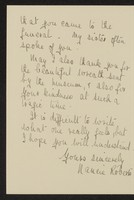 that you came to the
funeral. My sister often
spoke of you.
May I also thank you for
the beautiful wreath sent
by the museum, & also for
your kindness at such a
time.
It is difficult to write
what one really feels but
I hope you will understand
Yours sincerely
Roberts